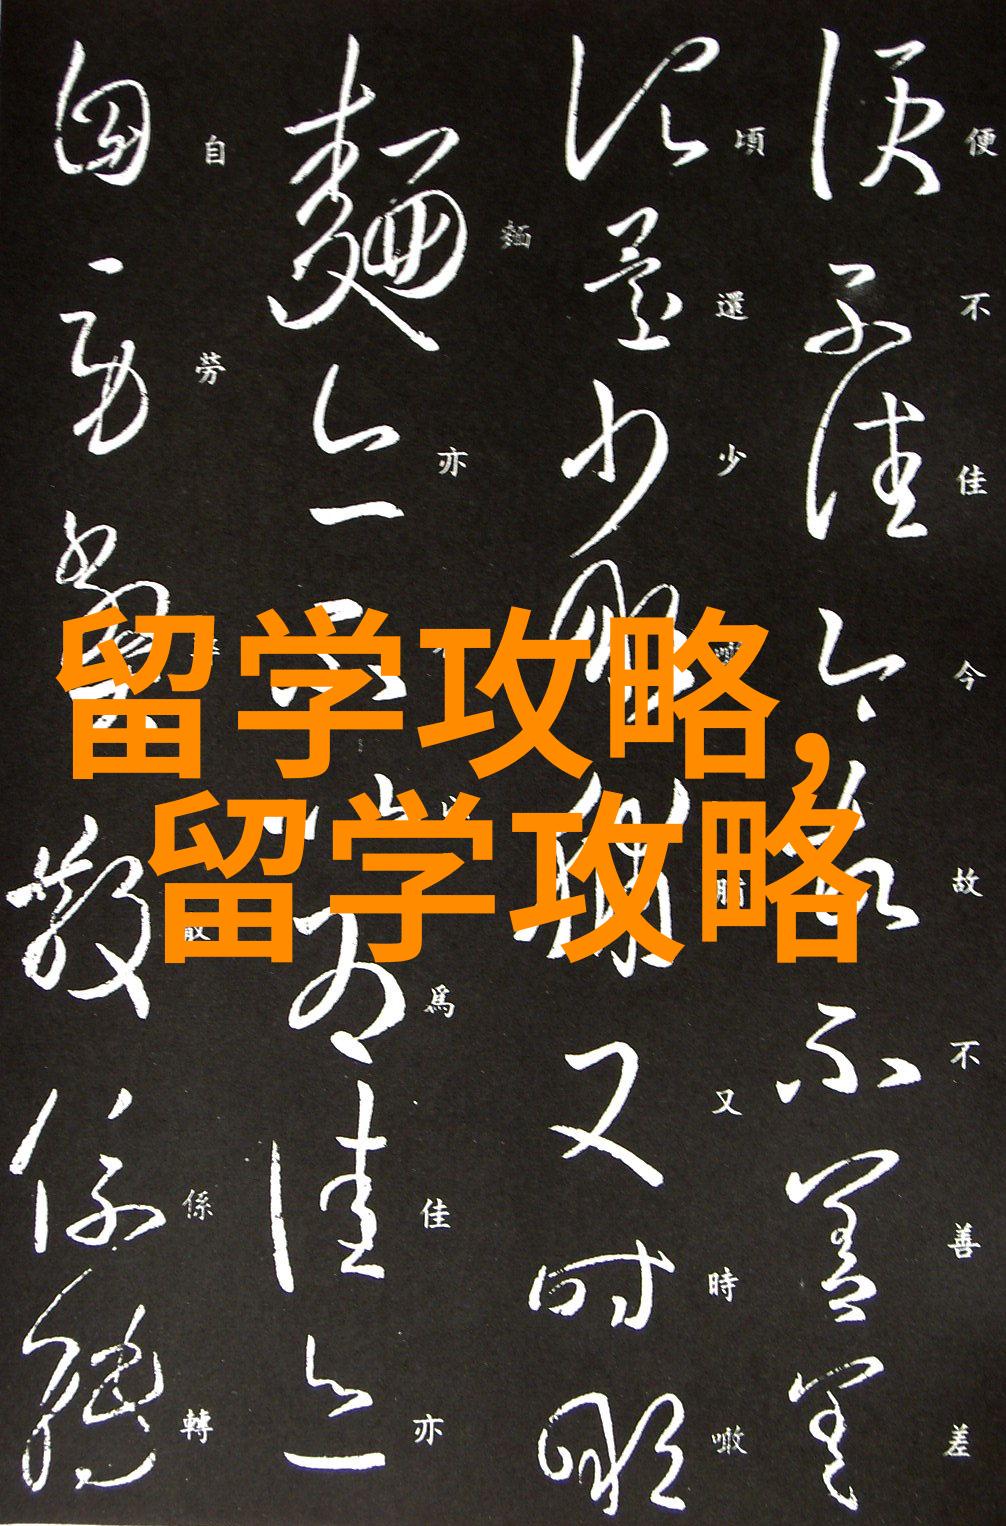 便不佳今故不善差
頃還少噉脯又時噉
麵亦不以爲佳亦
自勞散係轉
留学攻略,
留学攻略